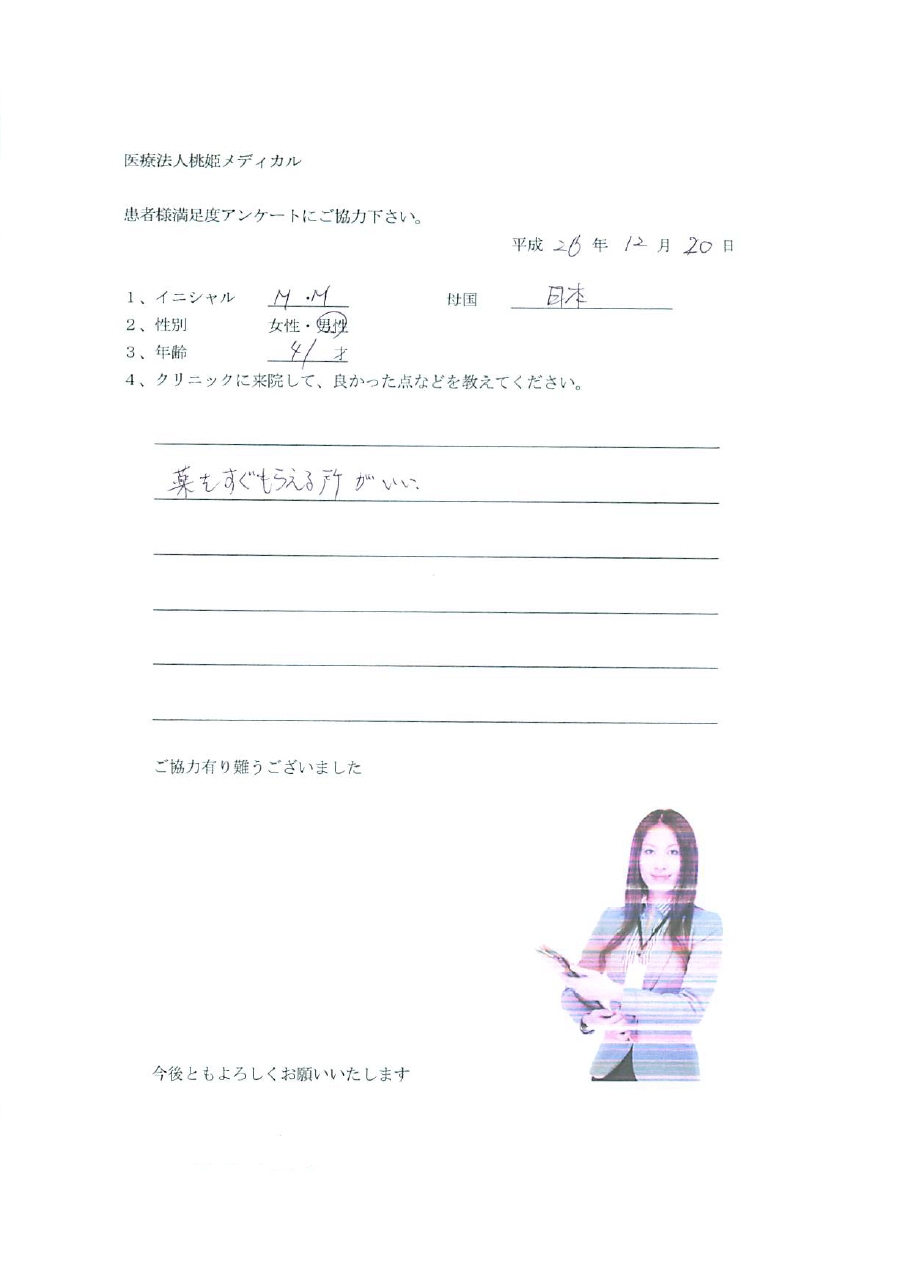 医療法人桃姫メディカル
患者様満足度アンケートにご協力下さい。
平成 26 年 12 月 20 日
1、イニシャル M・M 母国 日本
2、性別 女性・男性
3、年齢 41 才
4、クリニックに来院して、良かった点などを教えてください。
薬をすぐもらえる所がいい、
ご協力有り難うございました
今後ともよろしくお願いいたします